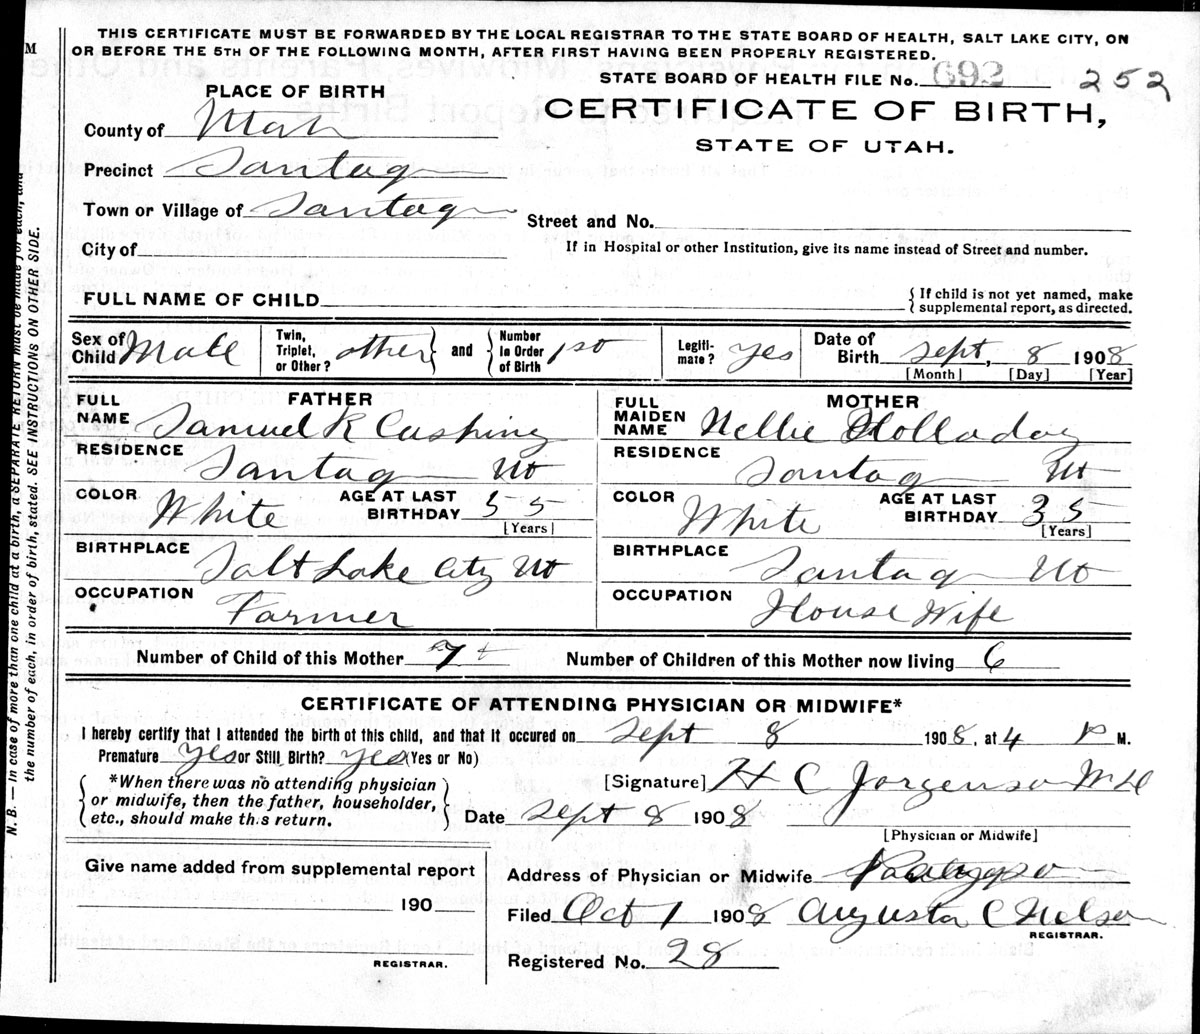 THIS CERTIFICATE MUST BE FORWARDED BY THE LOCAL REGISTRAR TO THE STATE BOARD OF HEALTH, SALT LAKE CITY, ON
OR BEFORE THE 5TH OF THE FOLLOWING MONTH, AFTER FIRST HAVING BEEN PROPERLY REGISTERED.
STATE BOARD OF HEALTH FILE No. 692 252
PLACE OF BIRTH
CERTIFICATE OF BIRTH,
STATE OF UTAH.
County of Utah
Precinct Santaquin
Town or Village of Santaquin
Street and No.
City of
If in Hospital or other Institution, give its name instead of Street and number.
FULL NAME OF CHILD
{If child is not yet named, make
supplemental report, as directed.
Sex of Child Male
Twin, Triplet, or Other? other } and { Number in Order of Birth 1st
Legiti-mate? yes
Date of Birth Sept, 8 1908
[Month] [Day] [Year]
FATHER
FULL NAME Samuel R Cushing
RESIDENCE Santaquin Ut
COLOR White AGE AT LAST BIRTHDAY 55 [Years]
BIRTHPLACE Salt Lake City Ut
OCCUPATION Farmer
MOTHER
FULL MAIDEN NAME Nellie Holladay
RESIDENCE Santaquin Ut
COLOR White AGE AT LAST BIRTHDAY 35 [Years]
BIRTHPLACE Santaquin Ut
OCCUPATION House Wife
Number of Child of this Mother 7 Number of Children of this Mother now living 6
CERTIFICATE OF ATTENDING PHYSICIAN OR MIDWIFE*
I hereby certify that I attended the birth of this child, and that it occured on Sept 8 1908, at 4 P M.
Premature yes or Still Birth? yes (Yes or No)
*When there was no attending physician
or midwife, then the father, householder,
etc., should make this return.
[Signature] H C Jorgenson MD
Date Sept 8 1908
[Physician or Midwife]
Give name added from supplemental report
190
REGISTRAR.
Address of Physician or Midwife
Filed Oct 1 1908 Augusta C Nelson
REGISTRAR.
Registered No. 28
N. B. — In case of more than one child at a birth, a SEPARATE RETURN must be made for each, and
the number of each, in order of birth, stated. SEE INSTRUCTIONS ON OTHER SIDE.
M